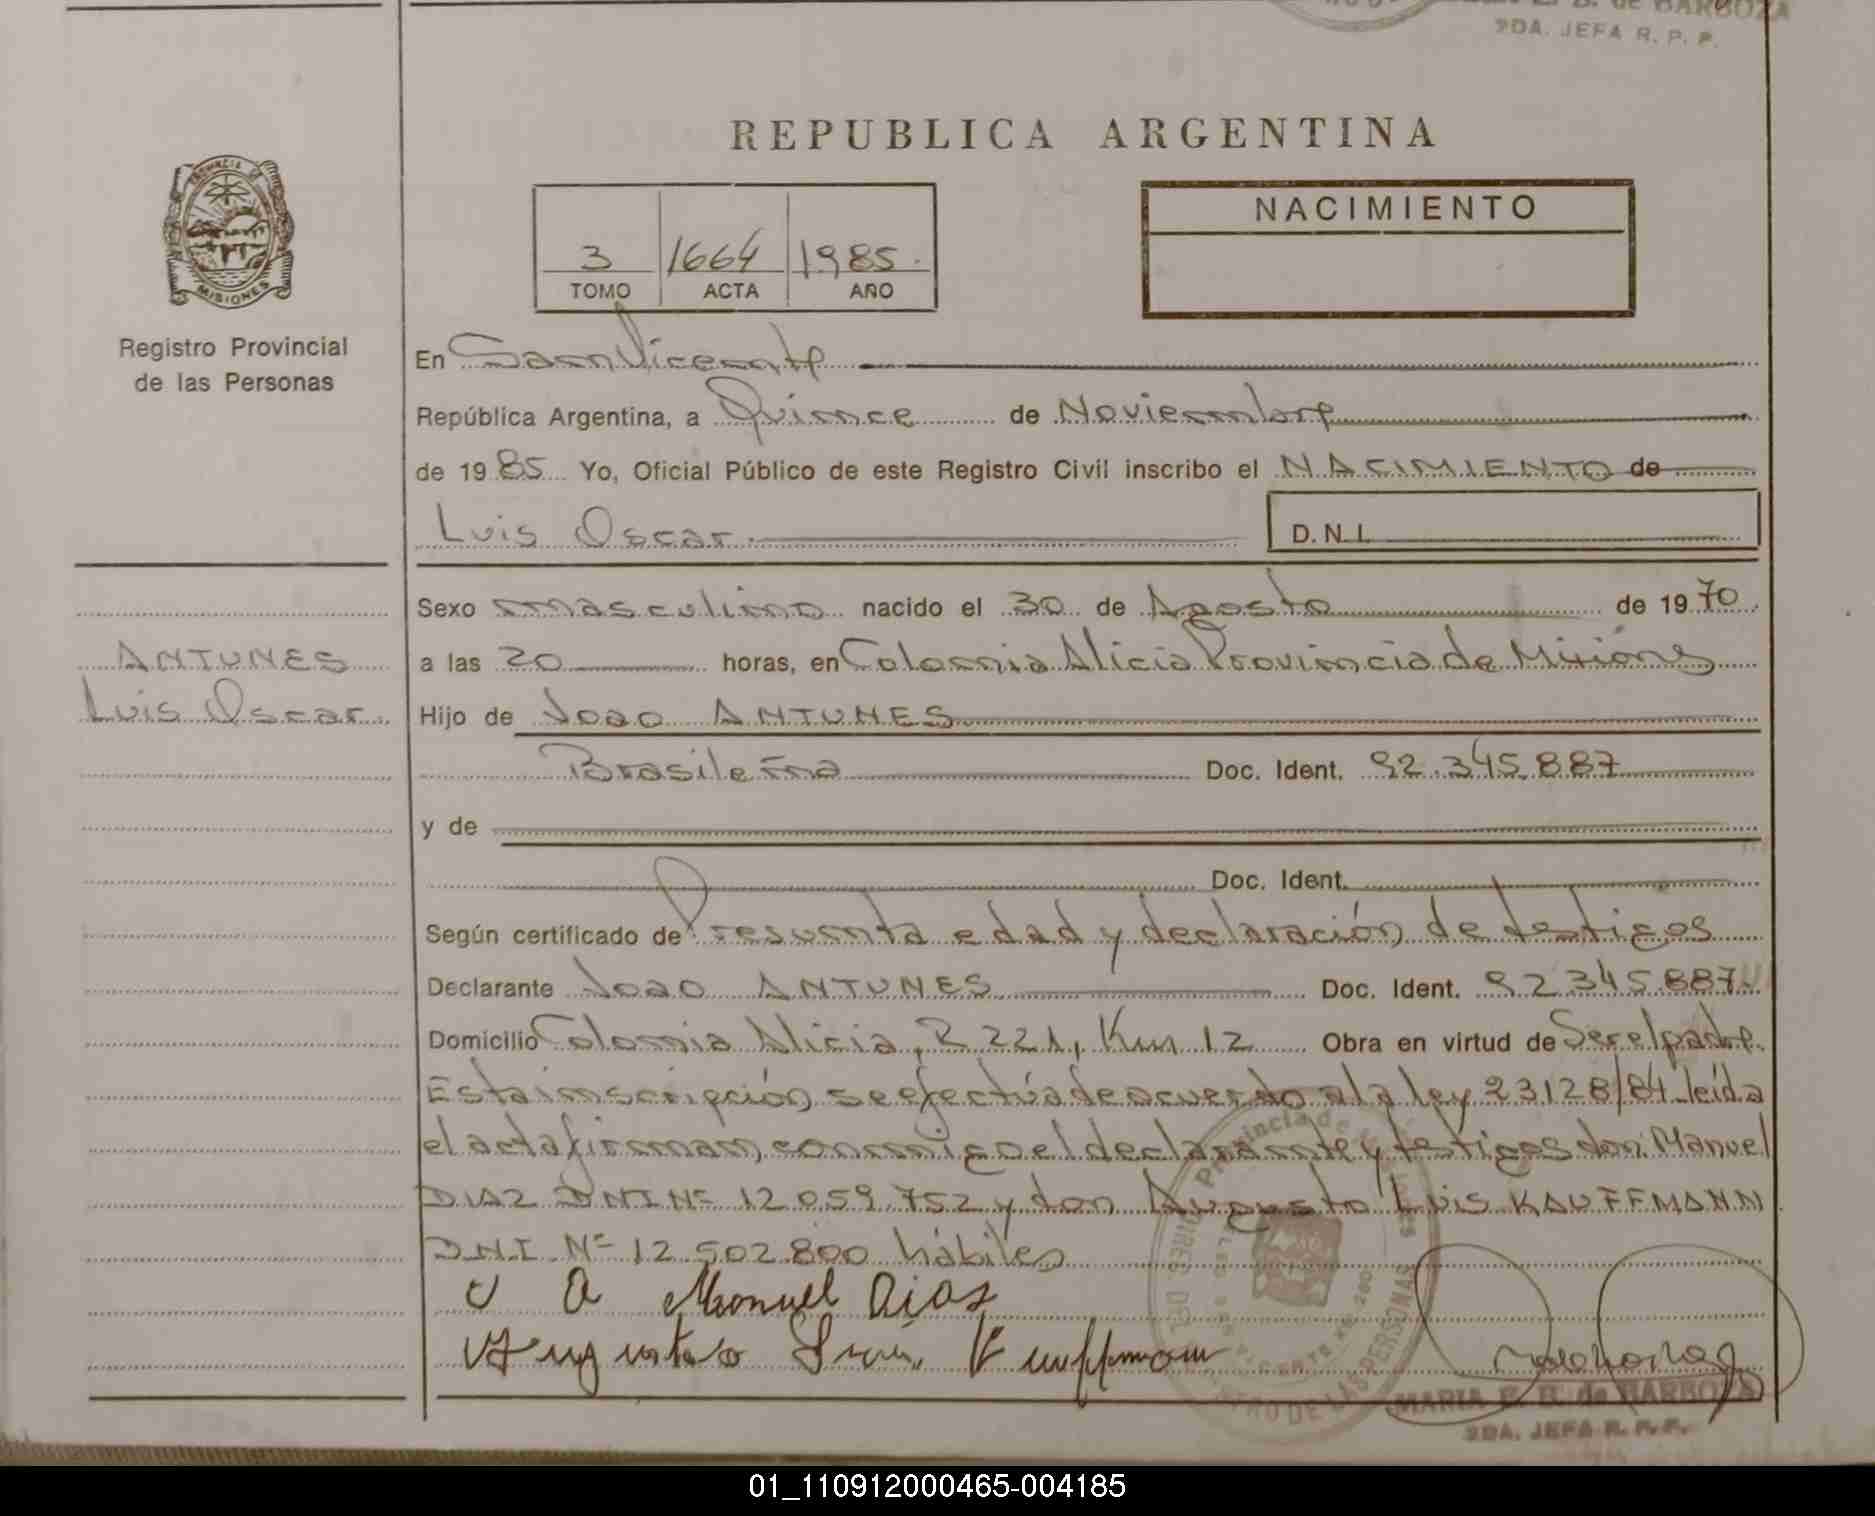 de BARBOZA
2DA. JEFA R. P. P.
REPUBLICA ARGENTINA
PROVINCIA DE
MISIONES
Registro Provincial
de las Personas
3 1664 1985
TOMO ACTA AÑO
NACIMIENTO
En San Vicente
República Argentina, a Quince de Noviembre
de 1985 Yo, Oficial Público de este Registro Civil inscribo el NACIMIENTO de
Luis Oscar D.N.I.
Sexo masculino nacido el 30 de Agosto de 1970
ANTUNES
Luis Oscar
a las 20 horas, en Colonia Alicia Provincia de Misiones
Hijo de Joao ANTUNES
Brasileña Doc. Ident. 92.345.887
y de
Doc. Ident.
Según certificado de Presunta edad y declaración de testigos
Declarante Joao ANTUNES Doc. Ident. 92 345 887
Domicilio Colonia Alicia, R 221, Km 12 Obra en virtud de Ser el padre.
Esta inscripción se efectúa de acuerdo a la ley 23128/84 leída
el acta firman conmigo el declarante y testigos don: Manuel
DIAZ DNI Nº 12.059.752 y don Augusto Luis KAUFFMANN
D.N.I. Nº 12.502.800 hábiles
Manuel Dias
Augusto Luis Kauffmann
Provincia de
REGISTRO DE LAS PERSONAS
MARIA E. B. de BARBOZA
2DA. JEFA R. P. P.
01_110912000465-004185